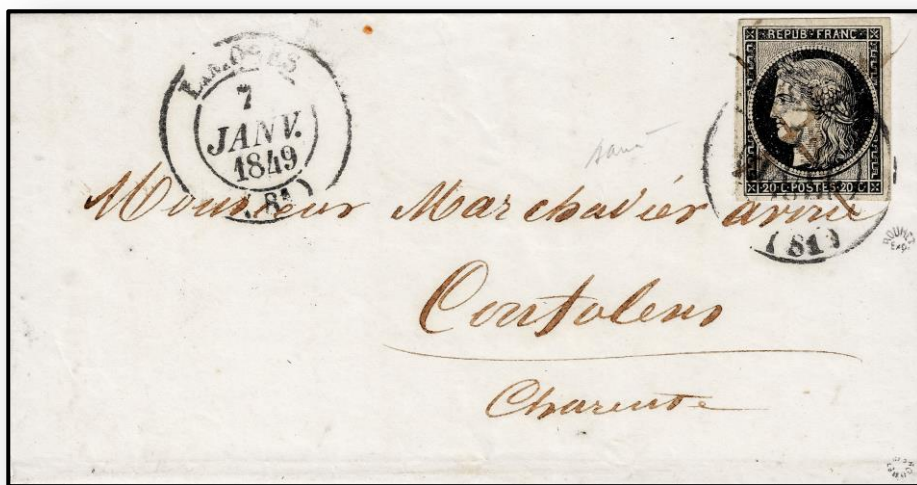 LIMOGES
7
JANV.
1849
(81)
REPUB. FRANC.
20 C. POSTES 20 C.
(81)
Monsieur Marchadier avoué
Confolens
Charente